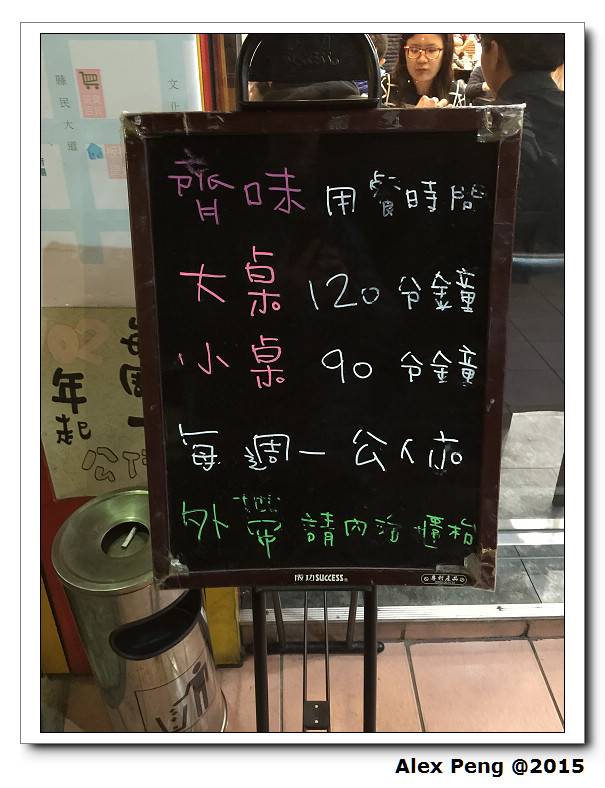 縣民大道
文化
齊味 用餐時間
大桌 120 分鐘
小桌 90 分鐘
每週一 公休
外帶 請內洽 櫃枱
年起
成功SUCCESS®
專利產品
Alex Peng @2015